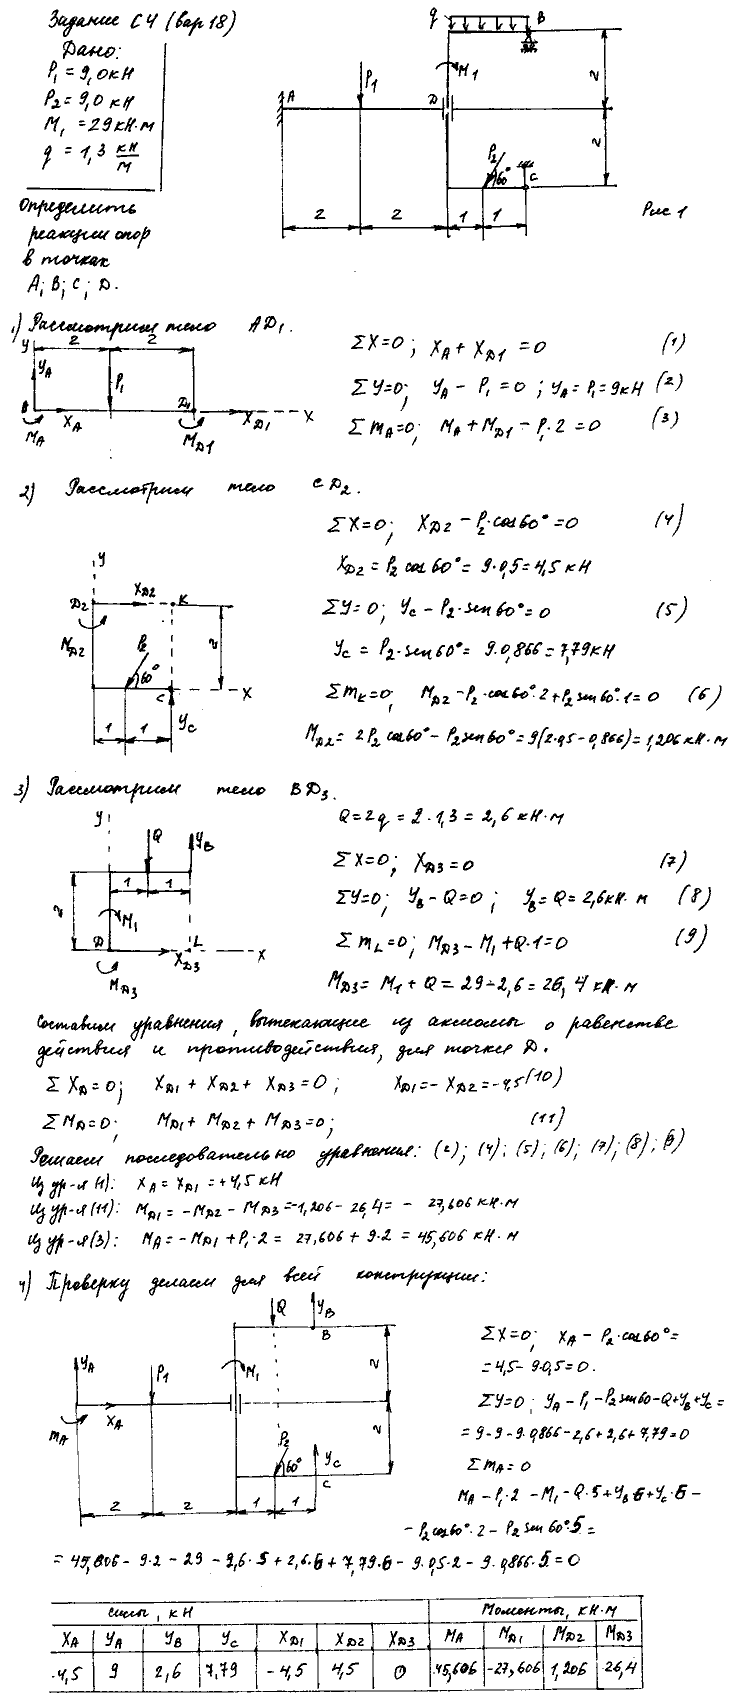 Задание С4 (вар 18)
Дано:
P₁ = 9,0 кН
P₂ = 9,0 кН
M₁ = 29 кН·м
q = 1,3 кН/м
Определить
реакции опор
в точках
A; B; C; D.
q B
M₁
A P₁ D
2
2
P₂ 60° C
2 2 1 1
Рис 1
1) Рассмотрим тело AD₁.
y 2 2
Y_A P₁ D₁
M_A X_A M_D1 X_D1 X
ΣX=0; X_A + X_D1 = 0 (1)
ΣY=0; Y_A - P₁ = 0; Y_A = P₁ = 9кН (2)
Σm_A=0; M_A + M_D1 - P₁·2 = 0 (3)
2) Рассмотрим тело CD₂.
y
D₂ X_D2 K
M_D2 P₂ 60° 2
C X
1 1 Y_C
ΣX=0; X_D2 - P₂·cos60° = 0 (4)
X_D2 = P₂ cos60° = 9·0,5 = 4,5 кН
ΣY=0; Y_C - P₂·sen60° = 0 (5)
Y_C = P₂·sen60° = 9·0,866 = 7,79 кН
Σm_K=0; M_D2 - P₂·cos60°·2 + P₂ sen60°·1 = 0 (6)
M_D2 = 2P₂ cos60° - P₂ sen60° = 9(2·0,5 - 0,866) = 1,206 кН·м
3) Рассмотрим тело BD₃.
y Q Y_B
1 1
2 M₁
D X_D3 L X
M_D3
Q = 2q = 2·1,3 = 2,6 кН·м
ΣX=0; X_D3 = 0 (7)
ΣY=0; Y_B - Q = 0; Y_B = Q = 2,6 кН·м (8)
Σm_L=0; M_D3 - M₁ + Q·1 = 0 (9)
M_D3 = M₁ + Q = 29 - 2,6 = 26,4 кН·м
Составим уравнения, вытекающие из аксиомы о равенстве
действия и противодействия, для точки D.
ΣX_D=0; X_D1 + X_D2 + X_D3 = 0; X_D1 = - X_D2 = -4,5 (10)
ΣM_D=0; M_D1 + M_D2 + M_D3 = 0; (11)
Решаем последовательно уравнения: (2); (4); (5); (6); (7); (8); (9)
Из ур-я (1): X_A = X_D1 = +4,5 кН
Из ур-я (11): M_D1 = -M_D2 - M_D3 = -1,206 - 26,4 = - 27,606 кН·м
Из ур-я (3): M_A = -M_D1 + P₁·2 = 27,606 + 9·2 = 45,606 кН·м
4) Проверку делаем для всей конструкции:
Q Y_B
B
Y_A P₁ M₁ 2
m_A X_A 2
P₂ 60° Y_C
C
2 2 1 1
ΣX=0; X_A - P₂·cos60° =
= 4,5 - 9·0,5 = 0.
ΣY=0; Y_A - P₁ - P₂ sen60 - Q + Y_B + Y_C =
= 9 - 9 - 9·0,866 - 2,6 + 2,6 + 7,79 = 0
Σm_A = 0
M_A - P₁·2 - M₁ - Q·5 + Y_B·6 + Y_C·6 -
- P₂cos60°·2 - P₂ sen60°·5 =
= 45,606 - 9·2 - 29 - 2,6·5 + 2,6·6 + 7,79·6 - 9·0,5·2 - 9·0,866·5 = 0
силы, кН Моменты, кН·м
X_A Y_A Y_B Y_C X_D1 X_D2 X_D3 M_A M_D1 M_D2 M_D3
4,5 9 2,6 7,79 -4,5 4,5 0 45,606 -27,606 1,206 26,4